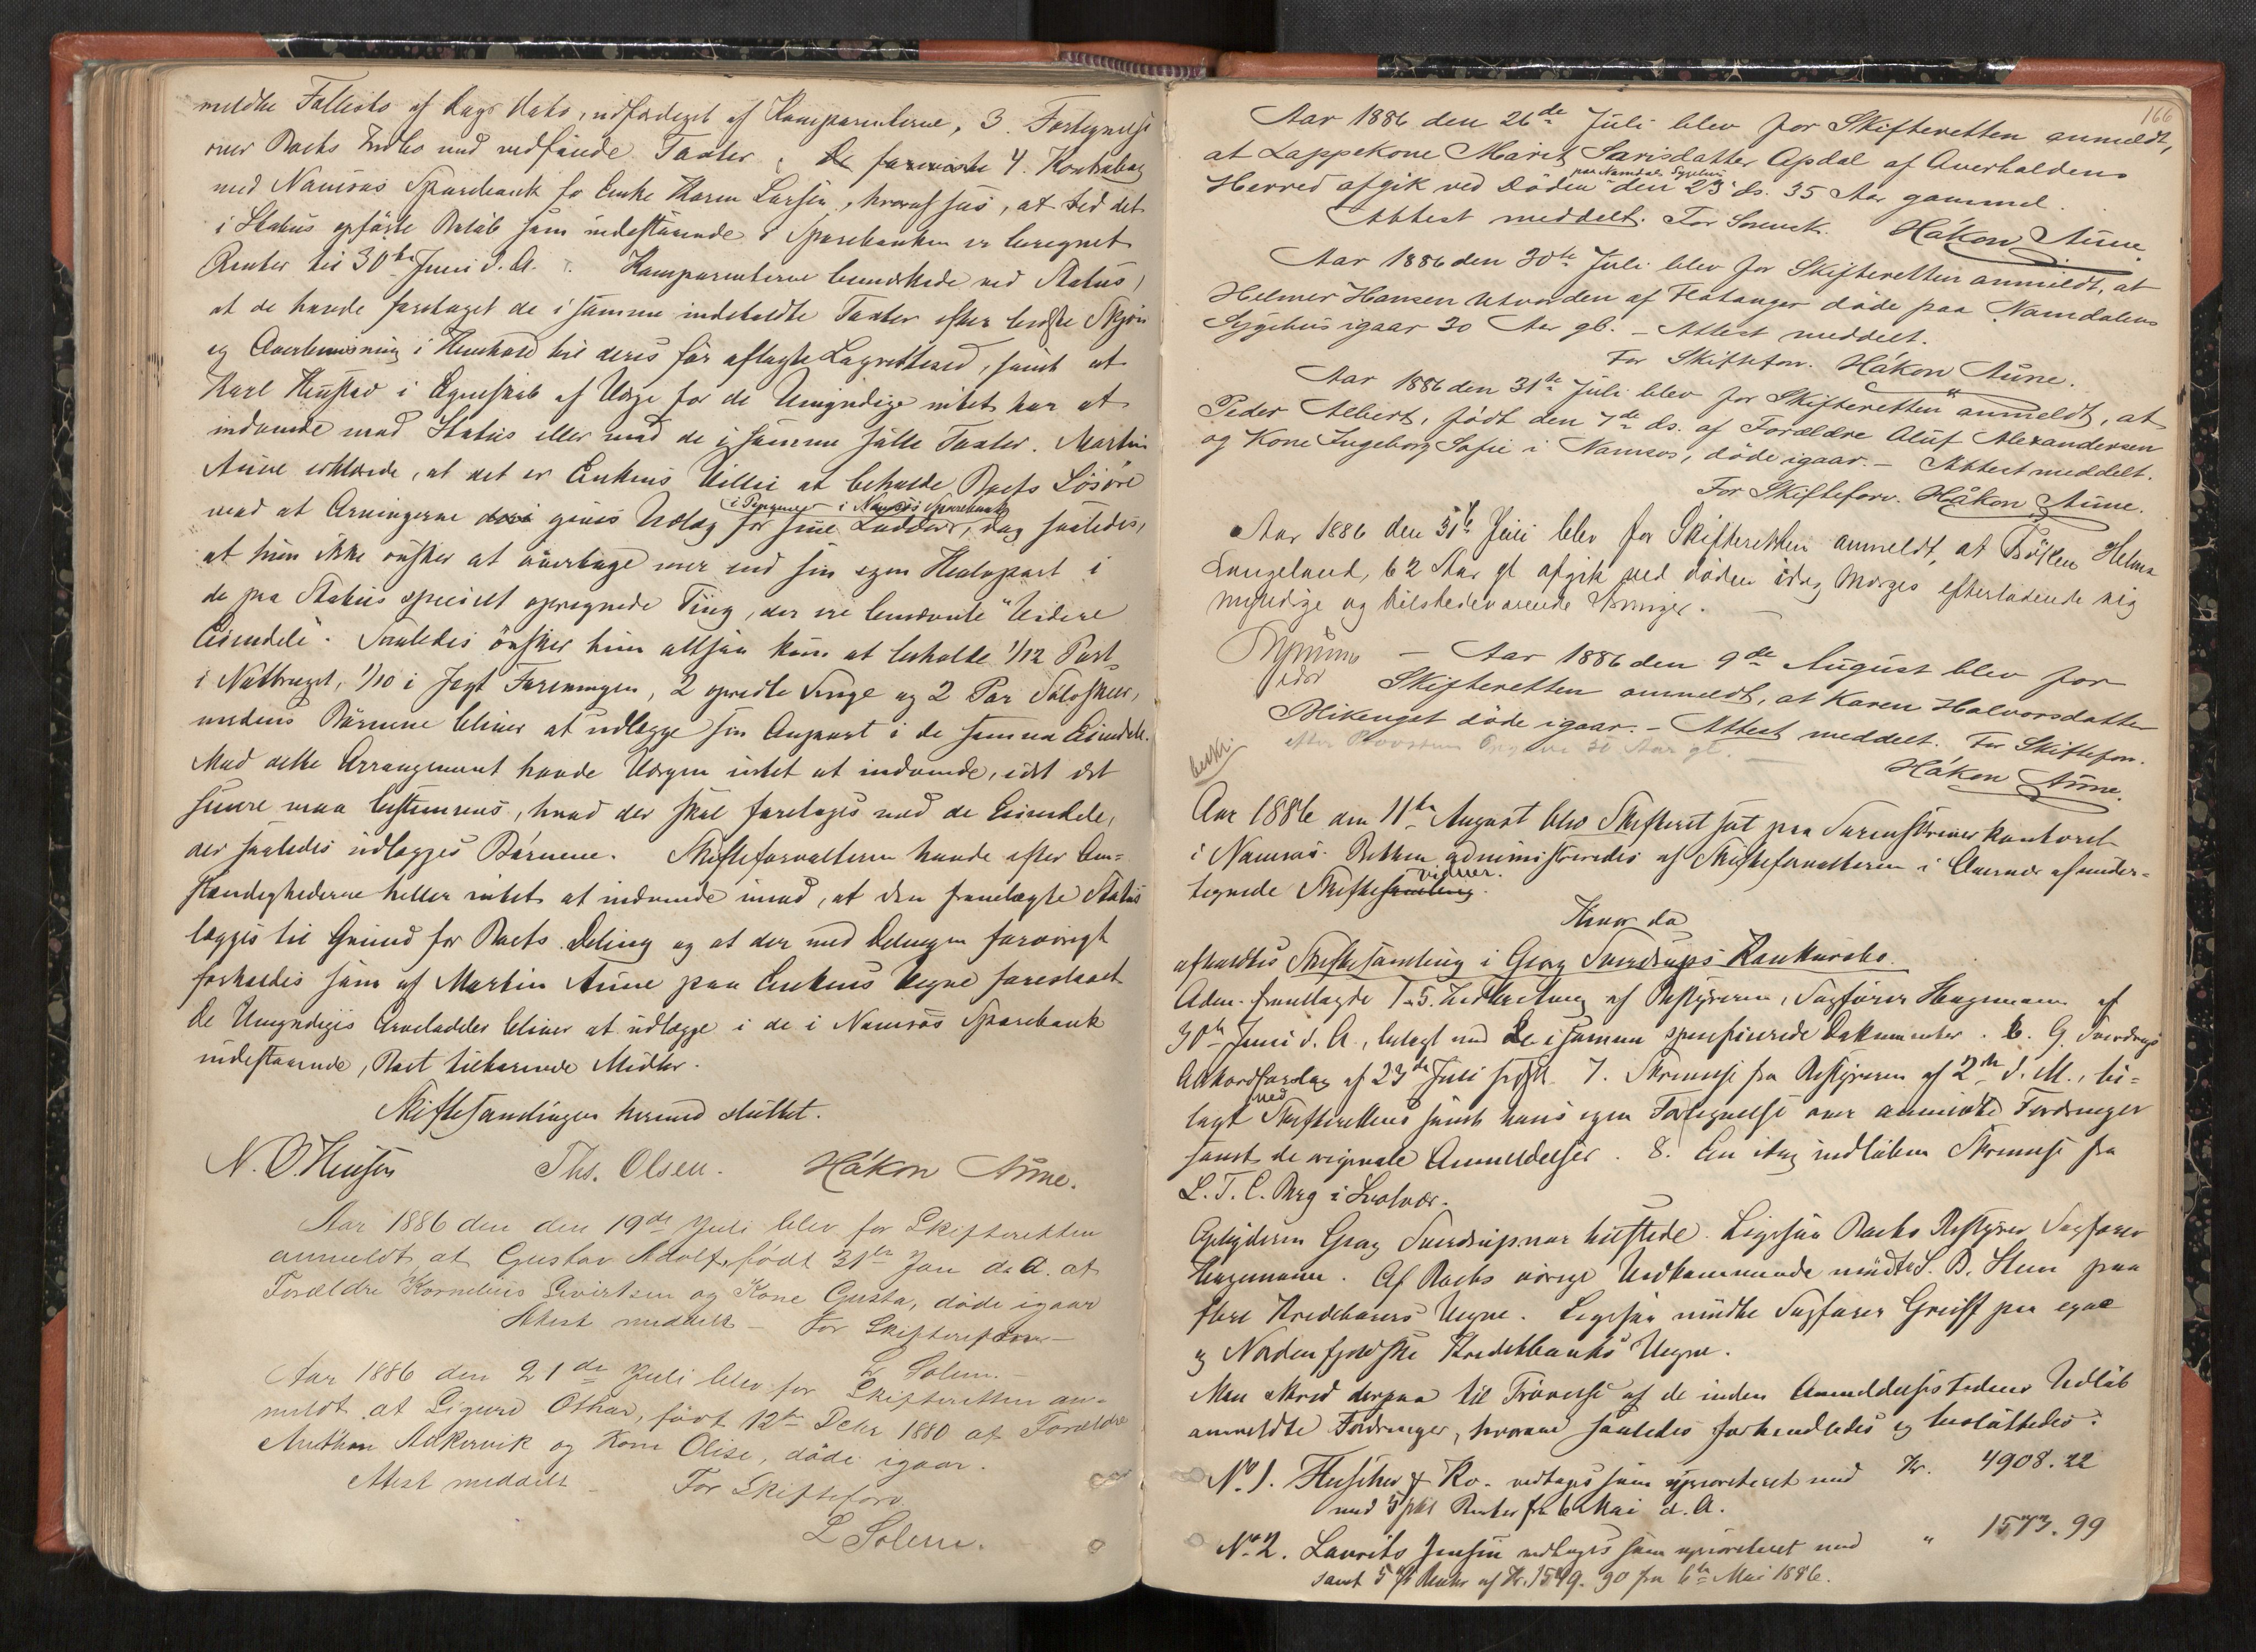 meldte Fallisbo af dags Dato, udfærdiget af Komparenterne, 3. Fortegnelse
over Boets Indbo med vedføiede Taxter, 4. Kontrabog
med Namsos Sparebank for Enke Karen Larsen, hvoraf saaes, at det
i Status opførte Beløb som indestaaende i Sparebanken er beregnet
Renter til 30te Juni d. A. Komparenterne bemærkede ved Status,
at de havde foretaget de i samme indeholdte Taxter efter bedste Skjøn
og Overbevisning i Henhold til deres før aflagte Lagretteed, samt at
Karl Hustad i Egenskab af Værge for de Umyndige intet har at
indvende mod Status eller mod de i samme satte Taxter. Martin
Aune erklærede, at det er Enkens Villie at beholde Boets Løsøre
i Penger i Namsos Sparebank
mod at Arvingerne gives Udlæg for sine Lodder, dog saaledes,
at hun ikke ønsker at overtage mer end sin egen Halvpart i
de paa Status specielt opregnede Ting, der ere benævnte "Videre
Eiendele". Saaledes ønsker hun altsaa kun at beholde 1/12 Part
i Notbruget, 1/10 i Jagt Foreningen, 2 opredte Senge og 2 Par Sølvskeer,
medens Børnene bliver at udlægge sin Anpart i de samme Eiendele.
Mod dette Arrangement havde Værgen intet at indvende, idet det
senere maa bestemmes, hvad der skal foretages med de Eiendele,
der saaledes udlægges Børnene. Skifteforvalteren havde efter Om-
stændighederne heller intet at indvende imod, at den fremlagte Status
lægges til Grund for Boets Deling og at der med Delingen forøvrigt
forholdes som af Martin Aune paa Enkens Vegne foreslaaet
De Umyndiges Arvelodder bliver at udlægge i de i Namsos Sparebank
indestaaende, Boet tilhørende Midler.
Skiftesamlingen hermed sluttet.
Ths. Olsen. Håkon Aune.
Aar 1886 den den 19de Juli blev for Skifteretten
anmeldt at Gustav Adolf, født 31te Jan d. A. af
Forældre Kornelius Sivertsen og Kone Gusta, døde igaar
Attest meddelt – For Skifteforv –
L Solem. –
Aar 1886 den 21de Juli blev for Skifteretten an-
meldt at Sigurd Othar, født 12te Decbr 1880 af Forældre
Anthon Aakervik og Kone Olise, døde igaar.
Attest meddelt – For Skifteforv
L Solem.
166
Aar 1886 den 26de Juli blev for Skifteretten anmeldt,
at Lappekone Marit Larisdatter Apdal af Overhaldens
paa Namdals Sygehus
Herred afgik ved Døden den 23 ds. 35 Aar gammel.
Attest meddelt. For Sorensk. Håkon Aune.
Aar 1886 den 30te Juli blev for Skifteretten anmeldt, at
Helmer Hansen Utvorden af Flatanger døde paa Namdalens
Sygehus igaar 30 Aar gl. – Attest meddelt.
For Skifteforv. Håkon Aune.
Aar 1886 den 31te Juli blev for Skifteretten anmeldt, at
Peder Albert, født den 7de ds. af Forældre Oluf Alexandersen
og Kone Ingeborg Sofie i Namsos, døde igaar. – Attest meddelt.
For Skifteforv. Håkon Aune.
Aar 1886 den 31te Juli blev for Skifteretten anmeldt, at Frøken Helma
Langeland, 62 Aar gl afgik ved døden idag Morges efterladende sig
myndige og tilstedeværende Arvinger.
– Aar 1886 den 9de August blev for
Skifteretten anmeldt, at Karen Halvorsdatter
Blikenget døde igaar. – Attest meddelt. For Skifteforv.
Håkon Aune.
beskr.
Aar 1886 den 11te August blev Skifteret sat paa Sorenskriverkontoret
i Namsos. Retten administreredes af Skifteforvalteren i Overvær af under-
vidner.
tegnede Skiftesamling.
Hvor da
afholdtes Skiftesamling i Georg Sverdrups Konkursbo.
Adm. fremlagde 1-5. Indberetning af Bestyreren, Sagfører Hagemann af
30te Juni d. A., belagt med de i samme specificerede Dokumenter. 6. G. Sverdrups
Akkordforslag af 23de Juli sidstl. 7. Skrivelse fra Bestyreren af 2den d. M., bi-
ved
lagt Skifterettens samt hans egen Fortegnelse over anmeldte Fordringer
samt de originale Anmeldelser. 8. En idag indløben Skrivelse fra
L. T. C. Berg i Svolvær.
Opbyderen Georg Sverdrup var tilstede. Ligesaa Boets Bestyrer Sagfører
Hagemann. Af Boets øvrige Vedkommende mødte S. B. Steen paa
flere Kreditorers Vegne. Ligesaa mødte Sagfører Greiff paa egne
og Nordenfjeldske Kreditbanks Vegne.
Man skred derpaa til Prøvelse af de inden Anmeldelsestidens Udløb
anmeldte Fordringer, hvorom saaledes forhandledes og besluttedes:
No. 1. Huscher & Ko. vedtages som uprioriteret med Kr. 4908.22
med 5 pct Renter fra 6 Mai d. A.
No. 2. Laurits Jensen vedtages som uprioriteret med " 1573.99
samt 5 % Renter af Kr. 1549.90 fra 6te Mai 1886.